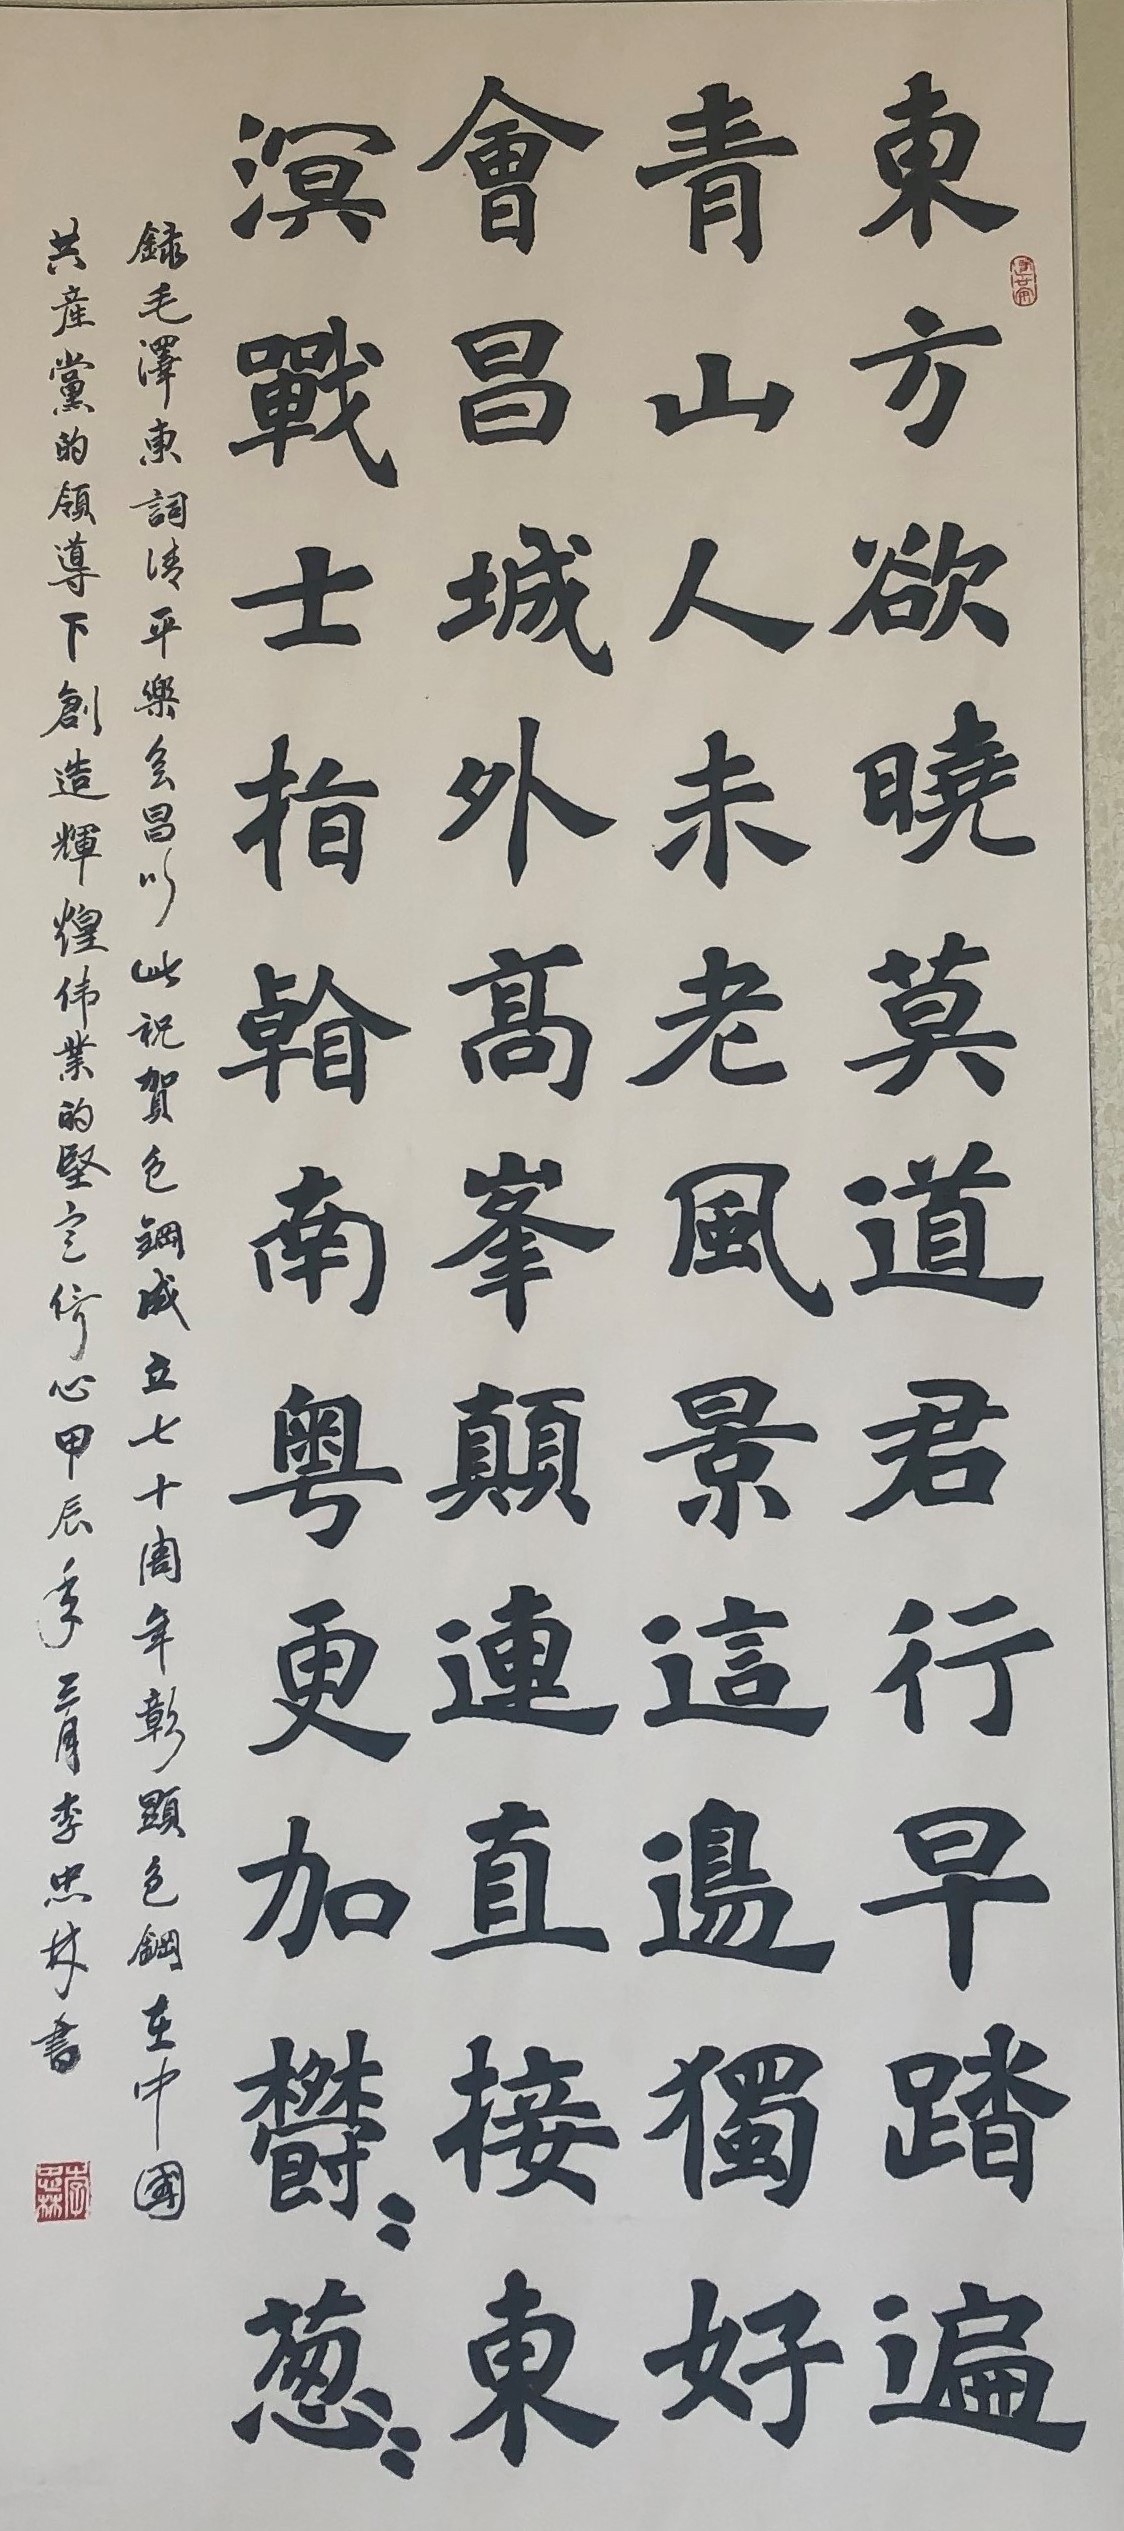 東方欲曉莫道君行早踏遍
青山人未老風景這邊獨好
會昌城外高峯顛連直接東
溟戰士指看南粤更加鬱〻葱〻
録毛澤東詞清平樂会昌以此祝賀色鋼成立七十周年彰顯色鋼在中國
共產黨的領導下創造輝煌伟業的堅定信心甲辰年三月李忠林書
李忠林